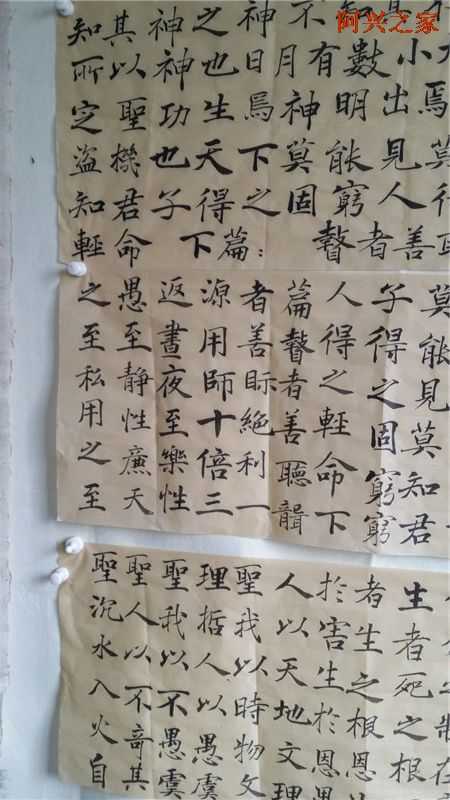 阿兴之家
知其神之神不知
所以神也日月有數小
定聖功生焉神明出焉
盜機也天下莫能見莫
知君子得之固窮人行
輕命 下篇：瞽者善
莫能見莫知君
子得之固窮窮
人得之輕命下
篇瞽者善聽聾
者善眎絕利一
源用師十倍三
返晝夜至樂性
愚至靜性廉天
之至私用之至
之制在
生者死之根
者生之根恩
於害生於恩
人以天地文理
聖我以時物文
理哲人以愚虞
聖我以不愚虞
聖人以不奇其
聖沉水入火自